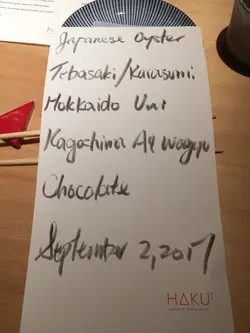 Japanese Oyster
Tebasaki/Karasumi
Hokkaido Uni
Kagoshima A4 wagyu
Chocolate
September 2, 2017
HAKU